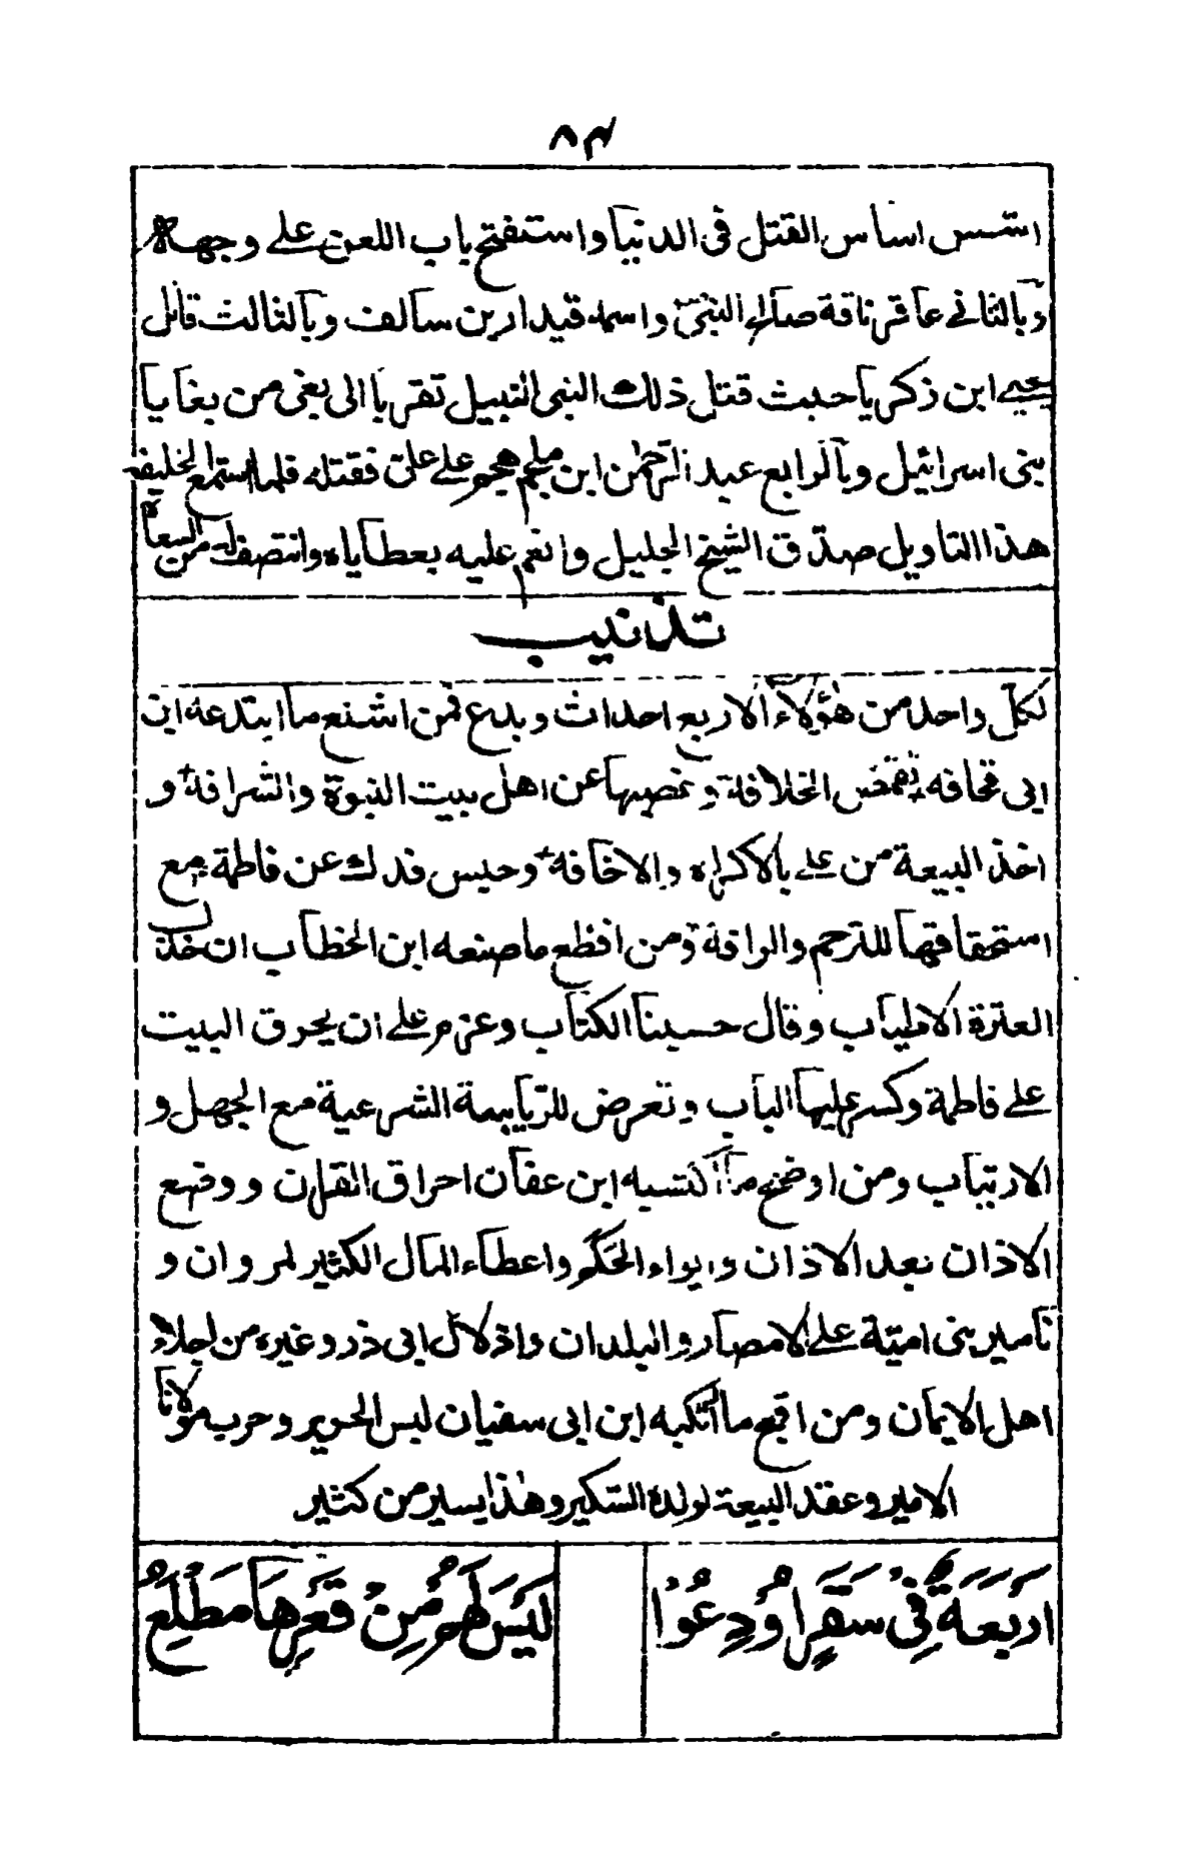 ٨٣
اسّس اساس القتل فى الدنيا واستفتح باب اللعن على وجهه
وبالثانى عاقر ناقة صالح النبىّ واسمه قيدار بن سالف وبالثالث قاتل
يحيى ابن زكريا حيث قتل ذلك النبى النبيل تقربا الى بغى من بغايا
بنى اسرائيل وبالرابع عبد الرحمن ابن ملجم هجم على علىّ فقتله فلما استمع الخليفة
هذا التاويل صدّق الشيخ الجليل وانعم عليه بعطاياه وانتصف له من السعاة
تذنيب
لكل واحد من هؤلاء الاربع احداث وبدع فمن اشنع ما ابتدعه ابن
ابى قحافه تقمّص الخلافة وغصبها عن اهل بيت النبوة والشرافة و
اخذ البيعة من على بالاكراه والاخافة وحبس فدك عن فاطمة مع
استحقاقها للترحم والرافة ومن افظع ما صنعه ابن الخطاب ان خذل
العترة الاطياب وقال حسبنا الكتاب وعزم على ان يحرق البيت
على فاطمة وكسر عليها الباب وتعرض للرياسة الشرعية مع الجهل و
الارتياب ومن اوضح ما اكتسبه ابن عفان احراق القران ووضع
الاذان بعد الاذان وايواء الحَكَم واعطاء المال الكثير لمروان و
تامير بنى اميّة على الامصار والبلدان واذلال ابى ذر وغيره من اجلاء
اهل الايمان ومن اقبح ما ارتكبه ابن ابى سفيان لبس الحرير وحرب مولانا
الامير وعقد البيعة لولده السّكير وهذا يسير من كثير
اَرْبَعَةٌ فِىْ سَقَرٍ اُوْدِعُوْا لَيْسَ لَهُمْ مِنْ قَعْرِهَا مَطْلَعُ